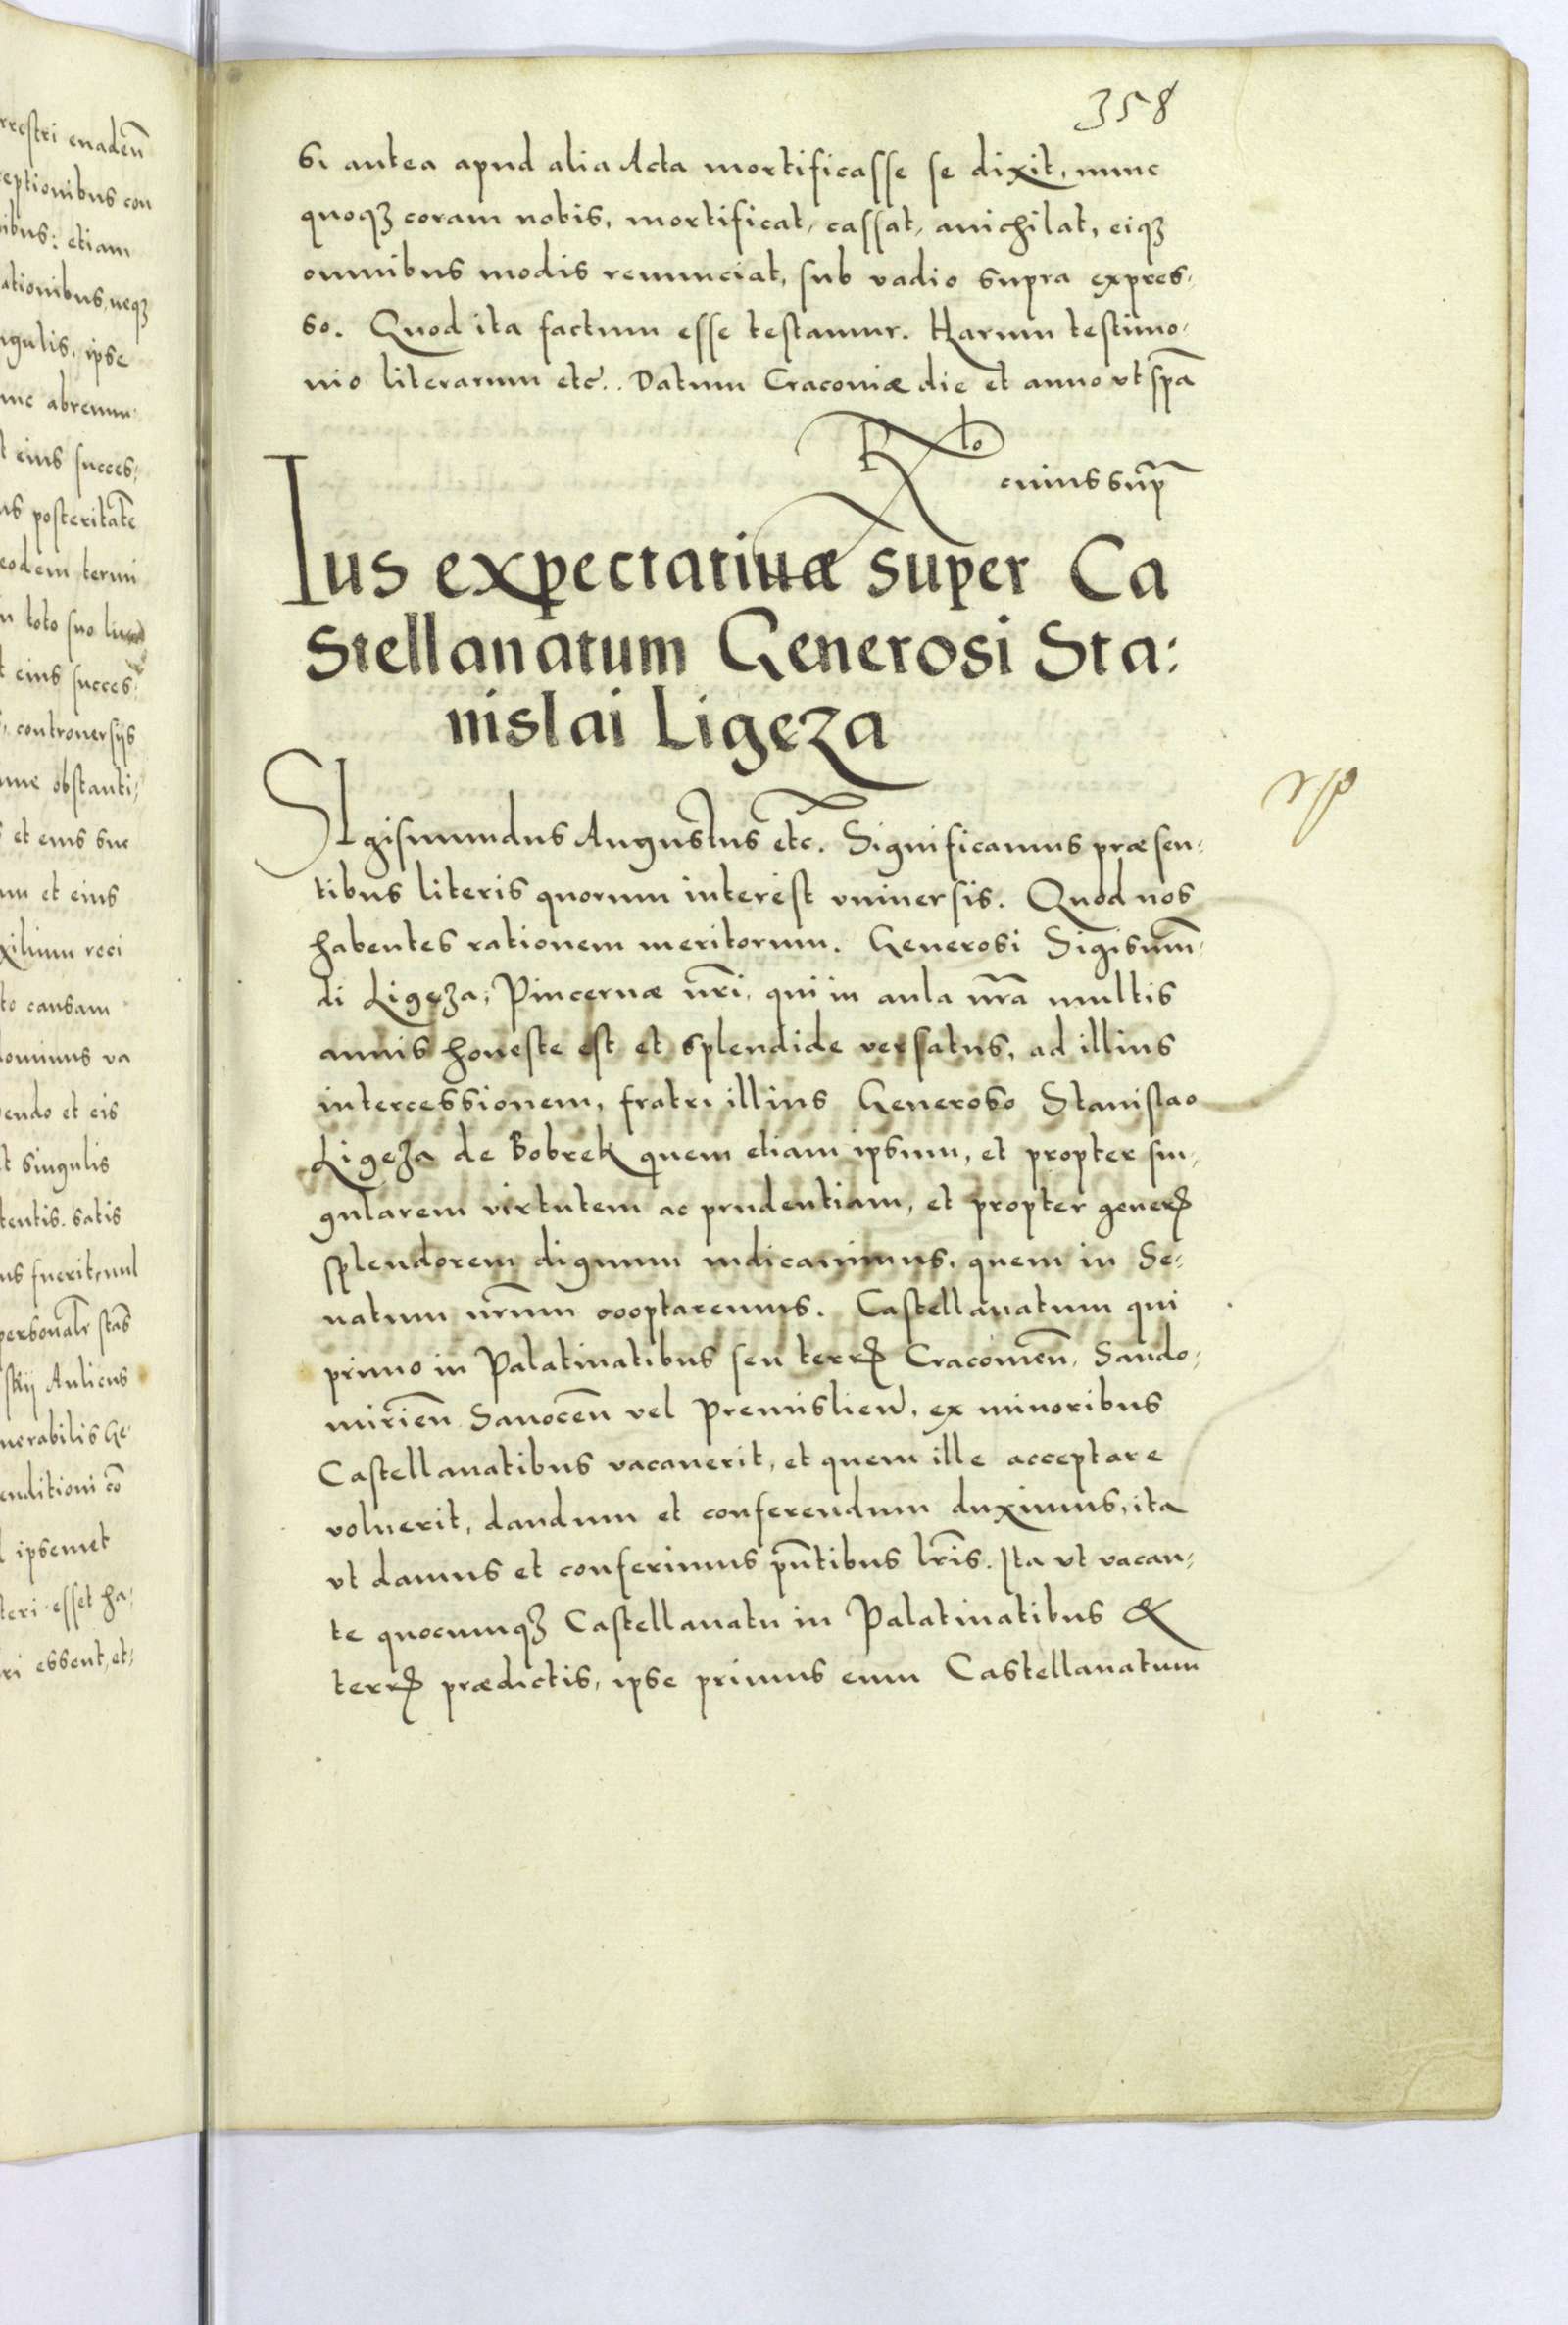 358
si antea apud alia Acta mortificasse se dixit, nunc
quoqȝ coram nobis, mortificat, cassat, anichilat, eiqȝ
omnibus modis renunciat, sub vadio supra expres,
so. Quod ita factum esse testamur. Harum testimo,
nio literarum etc̃.. Datum Cracoviæ die et anno vt sp̃a
Rlo
cuius sup̃
Ius expectativæ super Ca
stellanatum Generosi Sta:
nislai Ligeza
SIgismundus Augustus etc̃. Significamus præsen,
tibus literis quorum interest vniversis. Quod nos
habentes rationem meritorum. Generosi Sigismũ,
di Ligęza, Pincernæ nr̃i, qui in aula nr̃a multis
annis honeste est et splendide versatus, ad illius
intercessionem, fratri illius Generoso Stanislao
Ligęza de Bobrek quem etiam ipsum, et propter sin,
gularem virtutem ac prudentiam, et propter generꝭ
splendorem dignum iudicavimus, quem in Se,
natum nr̃um cooptaremus. Castellanatum qui
primo in Palatinatibus seu terrꝭ Cracovieñ, Sando,
mirieñ Sanoceñ vel Premislieñ, ex minoribus
Castellanatibus vacaverit, et quem ille acceptare
voluerit, dandum et conferendum duximus, ita
vt damus et conferimus pñtibus lr̃is. Ita vt vacan,
te quocumqȝ Castellanatu in Palatinatibus &
terrꝭ prædictis, ipse primus eum Castellanatum